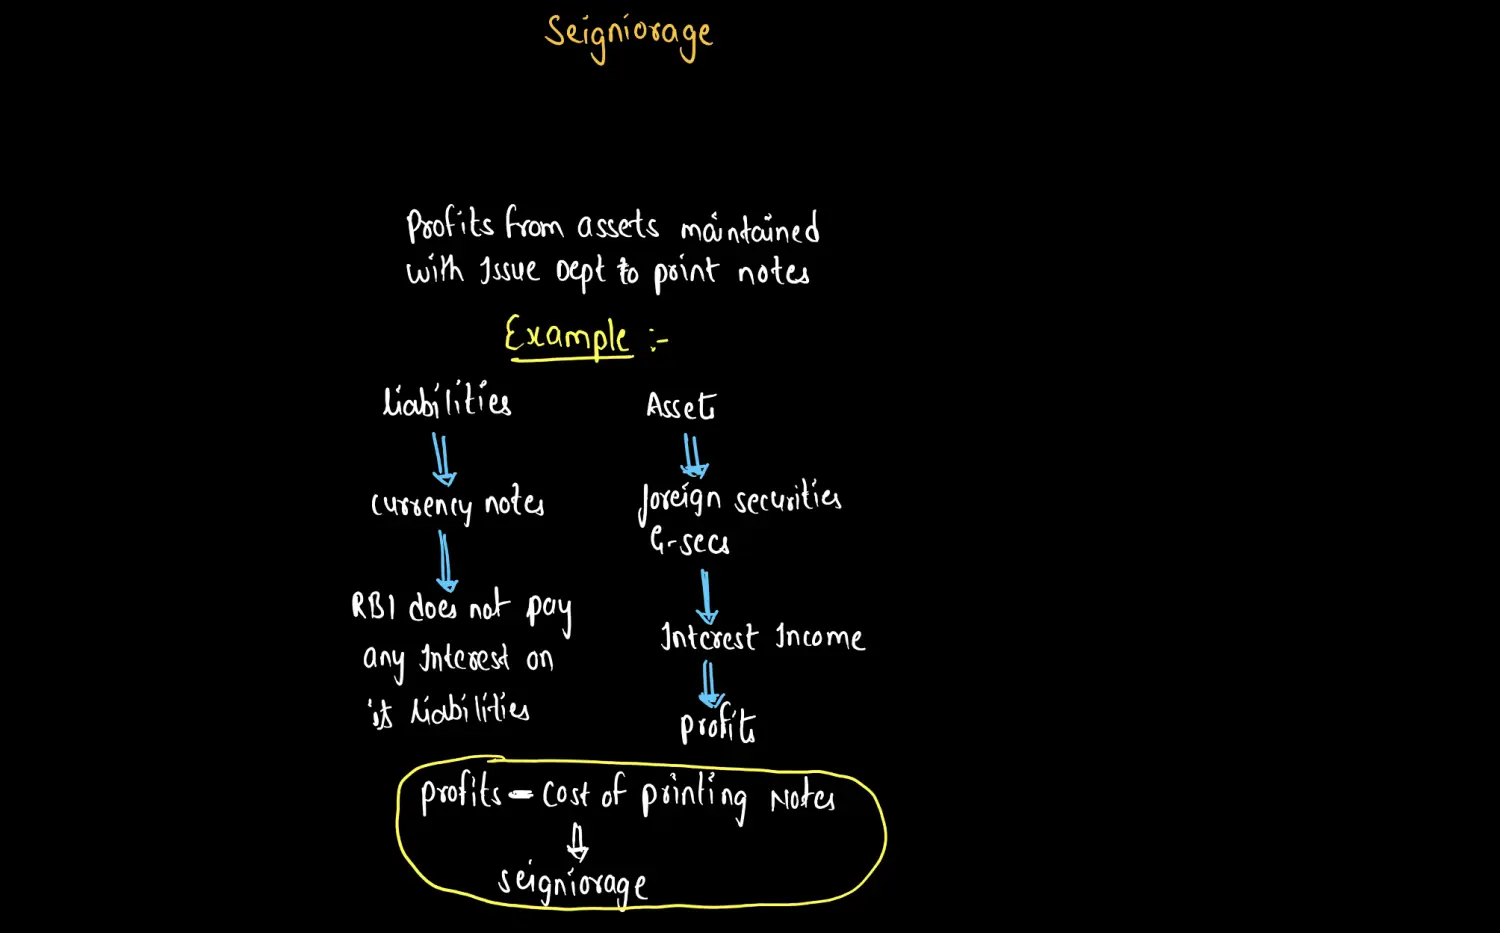 Seigniorage
Profits from assets maintained
with Issue Dept to print notes
Example :-
Liabilities
Asset
Currency notes
foreign securities
G-secs
RBI does not pay
any Interest on
its liabilities
Interest Income
Profits
Profits - Cost of printing Notes
seigniorage